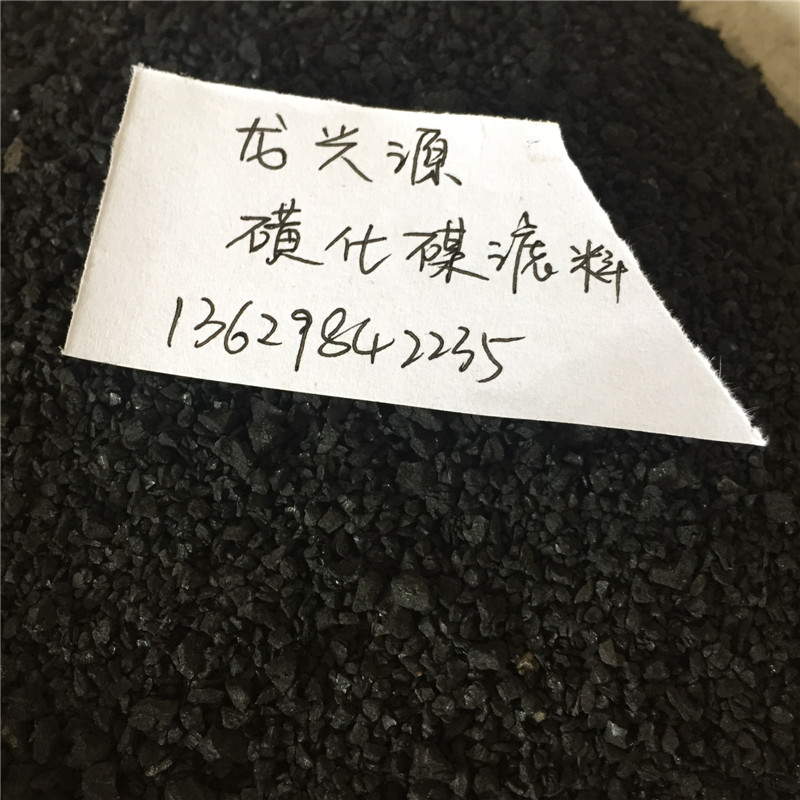 龙兴源
磺化碟滤料
13629842235